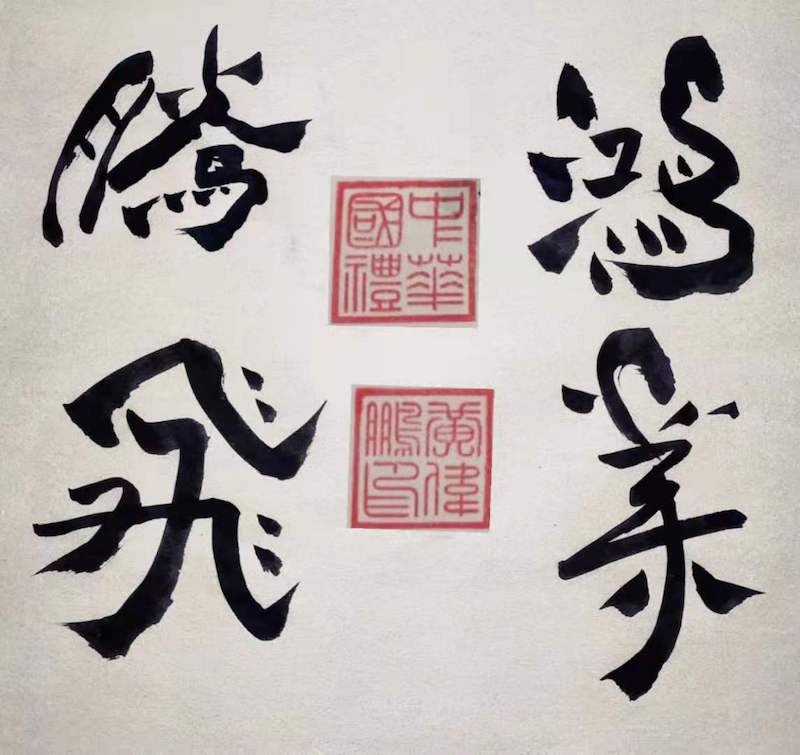 鴻業
騰飛
中華
國禮
黃偉
鵬印